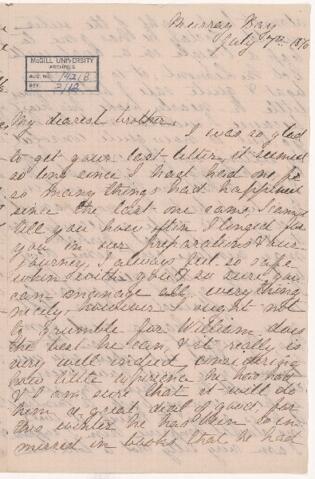 Murray Bay
July 7th 1876
McGILL UNIVERSITY
ARCHIVES
ACC. NO.
REF.
My dearest Mother,
I was so glad
to get your last letter, it seemed
so long since I had had no
so many things had happened
since the last one came, I cannot
tell you how often I longed for
you in our preparations & our
journey, I always feel so safe
when I'm with you & so sure you
can manage all everything
nicely, however I ought not
to grumble for William does
the best he can, & it really is
very well indeed, considering
how little experience he has had
& I am sure that it will do
him a great deal of good, for
this winter he has been so im
mersed in books that he had